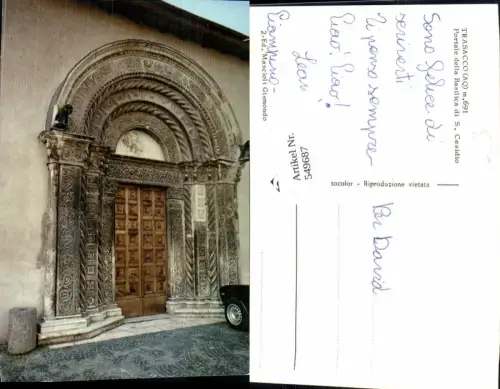 TRASACCO (AQ) m. 691
Portale della Basilica di S. Cesidio
Sono felice di
scriverti
Ti penso sempre
Ciao! Ciao!
Per David
2-Ed. Mascioli Gismondo
Artikel Nr.
549687
tocolor - Riproduzione vietata